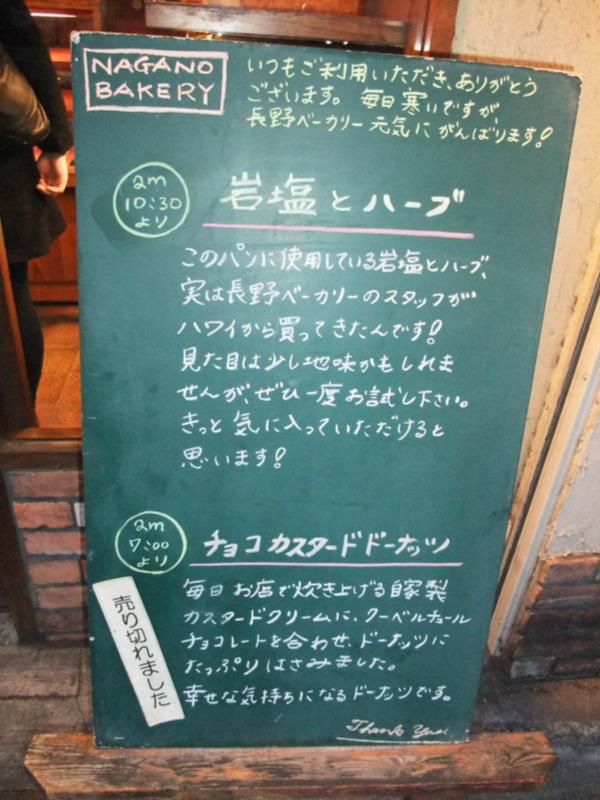 NAGANO
BAKERY
いつもご利用いただき、ありがとう
ございます。毎日寒いですが、
長野ベーカリー元気にがんばります!
am
10:30
より
岩塩とハーブ
このパンに使用している岩塩とハーブ、
実は長野ベーカリーのスタッフが
ハワイから買ってきたんです!
見た目は少し地味かもしれま
せんが、ぜひ一度お試し下さい。
きっと気に入っていただけると
思います!
am
7:00
より
チョコカスタードドーナッツ
毎日お店で炊き上げる自家製
カスタードクリームに、クーベルチュール
チョコレートを合わせ、ドーナッツに
たっぷりはさみました。
幸せな気持ちになるドーナッツです。
売り切れました
Thank You